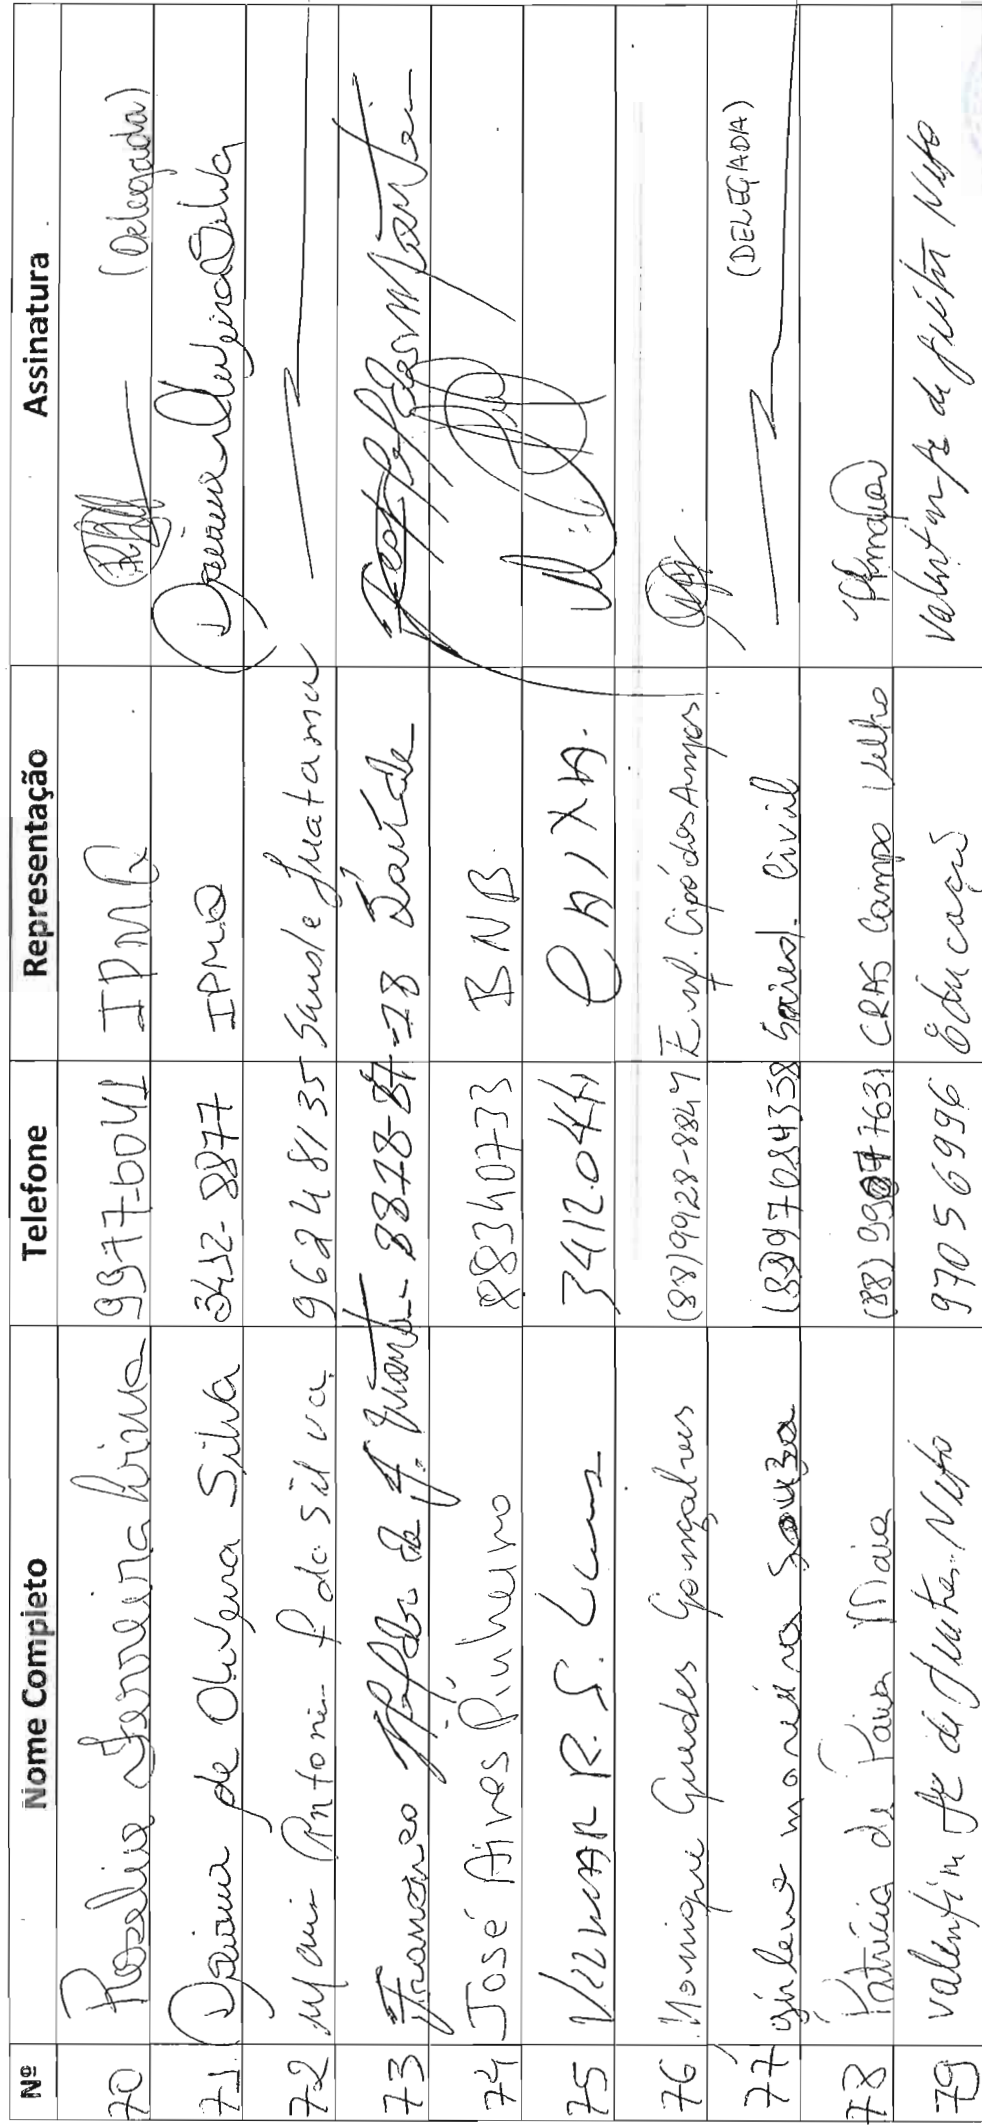 Nº Nome Completo Telefone Representação Assinatura
70 Roseline Ferreira Lima 9977-6041 IPMQ (Delegada)
71 Djaiana de Oliveira Silva 3412-8877 IPMQ Djaiana Oliveira Silva
72 Maria Antonia f da Silva 96248135 Saude Juatama
73 Francisco de A. 8878-87-18 Saúde
74 José Aires Pinheiro 88340733 BNB.
75 R. S. 3412.0444 CAIXA.
76 Monique Guedes Gonçalves (88)9928-8847 Enf. Cipó dos Anjos
77 girlene moreira Souza (88)97084358 Socied. Civil (DELEGADA)
78 Patrícia de Paiva Maia (88) CRAS Campo Velho
79 Valentim de Neto 97056996 Educação Valentim de Neto